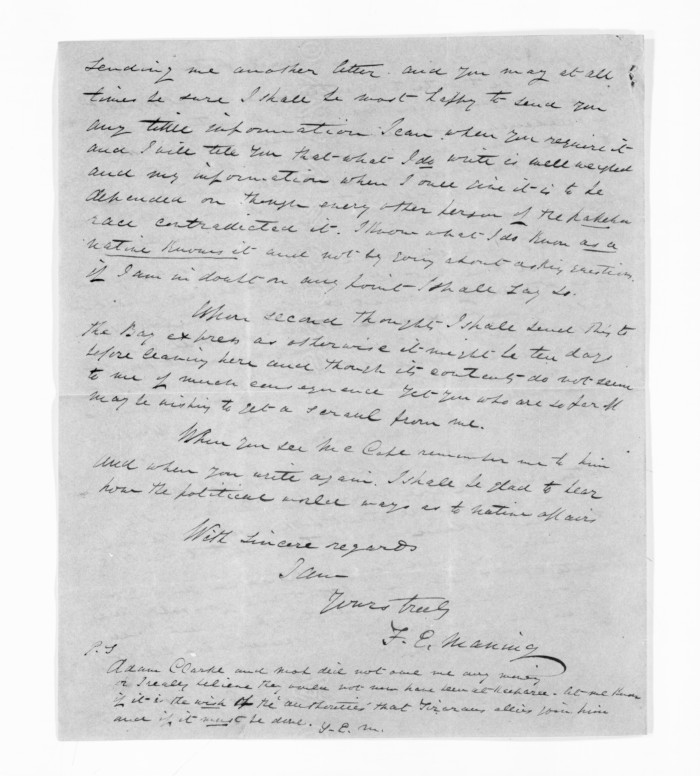 sending me another letter. and you may at all
times be sure I shall be most happy to send you
any little information I can when you require it
and I will tell you that what I do write is well weighed
and my information when I once give it is to be
depended on though every other person of the pakeha
race contradicted it. I know what I do know as a
native knows it and not by going about asking questions.
if I am in doubt on any point I shall say so.
When second thought I shall send this to
the Bay express as otherwise it might be ten days
before leaving here and though its contents do not seem
to me of much consequence yet you who are so far off
may be wishing to get a scrawl from me.
When you see Mc remember me to him
and when you write again. I shall be glad to hear
how the political world wags as to native affairs
With sincere regards
I am
Yours truly
F. E. Maning
P.S
Adam Clarke and did not owe me any money
or I really believe they would not now have been at . let me know
if it is the wish of the authorities that allies join him
and if it must be done. F. E. M.